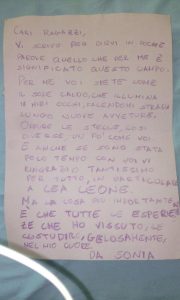 CARI RAGAZZI,
VI SCRIVO PER DIRVI IN POCHE
PAROLE QUELLO CHE PER ME È
SIGNIFICATO QUESTO CAMPO.
PER ME VOI SIETE COME
IL SOLE CALDO, CHE ILLUMINA
I MIEI OCCHI, FACENDOMI STRADA
LUNGO NUOVE AVVENTURE,
OPPURE LE STELLE, COSÌ
DIVERSE UN PO' COME VOI.
E ANCHE SE SONO STATA
POCO TEMPO CON VOI VI
RINGRAZIO TANTISSIMO
PER TUTTO, IN PARTICOLARE
A LEA LEONE.
MA LA COSA PIÙ IMPORTANTE
È CHE TUTTE LE ESPERIEN
ZE CHE HO VISSUTO, LE
CUSTODIRÒ GELOSAMENTE,
NEL MIO CUORE.
DA SONIA